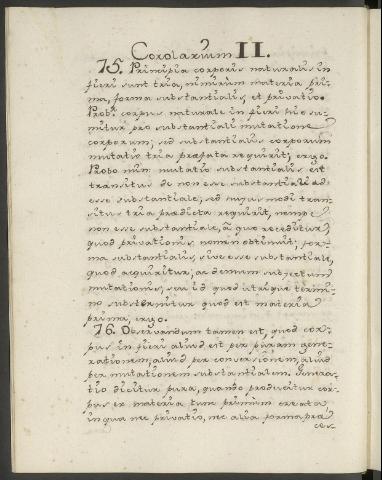 Corolarium II.
75. Principia corporis naturalis in
fieri sunt tria, nimirum materia pri-
ma, forma substantialis, et privatio.
Probr corpus naturale in fieri hic su-
mitur pro substantiali mutatione
corporum; sed substantialis corporum
mutatio tria præfata requirit; ergo.
Probo min: mutatio substantialis est
transitus de non esse substantiali ad
esse substantiale, sed hujus modi tran-
situs tria prædicta requirit, nempe
non esse substantiale, à quo receditur,
quod privationis nomen obtinuit; for-
ma substantialis, sive esse substantiale,
quod acquiritur; ac demum subjectum
mutationis, seu id quod utrique termi-
no substernitur quod est materia
prima, ergo.
76. Observandum tamen est, quod cor-
pus in fieri aliud est per puram gene-
rationem, aliud per conversionem, aliud
per mutationem substantialem. Genera-
tio dicitur pura, quando producitur cor-
pus ex materia tum primum creata
in qua nec privatio, nec alia forma præ
ces-